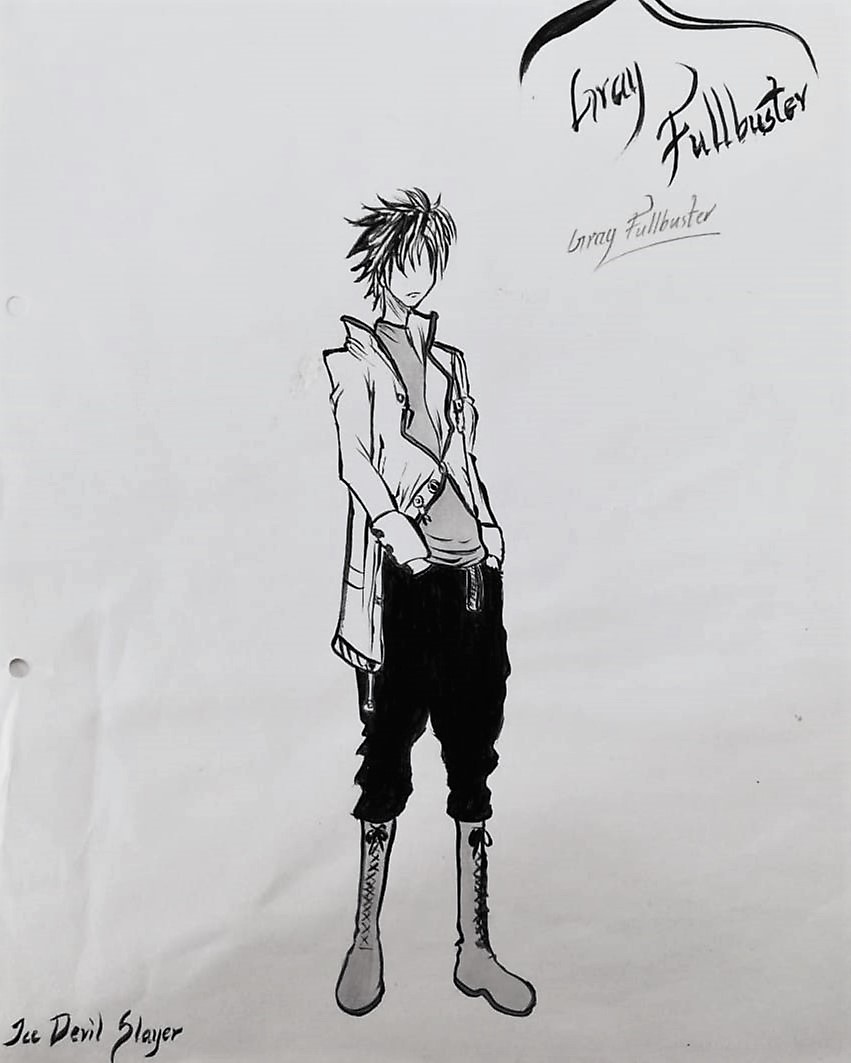 Gray
Fullbuster
Gray Fullbuster
Ice Devil Slayer